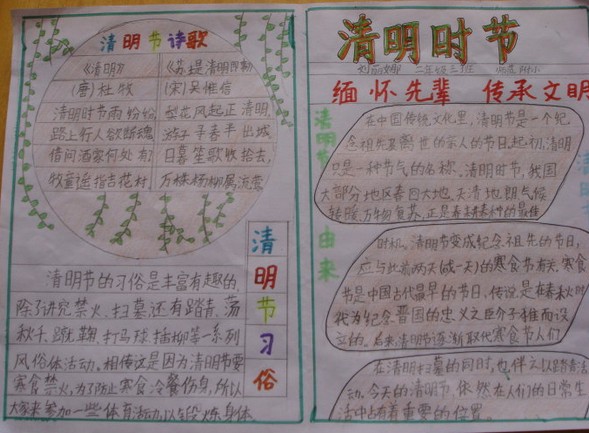 清明节诗歌
《清明》
(唐)杜牧
清明时节雨纷纷
路上行人欲断魂
借问酒家何处有
牧童遥指杏花村
《苏堤清明即事》
(宋)吴惟信
梨花风起正清明,
游子寻春半出城
日暮笙歌收拾去,
万株杨柳属流莺
清明节习俗
清明节的习俗是丰富有趣的,
除了讲究禁火、扫墓,还有踏青、荡
秋千、蹴鞠、打马球、插柳等一系列
风俗体活动。相传这是因为清明节要
寒食禁火,为了防止寒食冷餐伤身,所以
大家来参加一些体育活动,以锻炼身体
清明时节
二年级三班
缅怀先辈 传承文明
清明节
由来
在中国传统文化里,清明节是一个纪
念祖先其离世的亲人的节日,起初,清明
只是一种节气的名称。清明时节,我国
大部分地区春回大地,天清地朗,气候
转暖,万物复苏,正是春耕春种的最佳
时机。清明节变成纪念祖先的节日,
应与此前两天(或一天)的寒食节有关。寒食
节是中国古代最早的节日,传说是在春秋时
我为纪念晋国的忠义之臣介子推而设
立的。后来,清明节逐渐取代寒食节人们
在清明扫墓的同时,也伴之以踏青活
动。今天的清明节,依然在人们的日常生
活中占有着重要的位置。